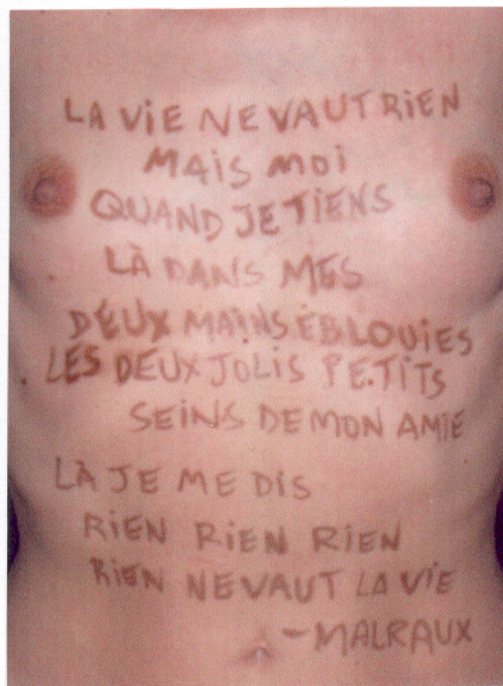 LA ViE NE VAUT RiEN
MAiS MOi
QUAND JE TiENS
LÀ DANS MES
DEUX MAiNS ÉBLOUiES
LES DEUX JOLiS PETiTS
SEiNS DE MON AMiE
LÀ JE ME DiS
RiEN RiEN RiEN
RiEN NE VAUT LA ViE
- MALRAUX